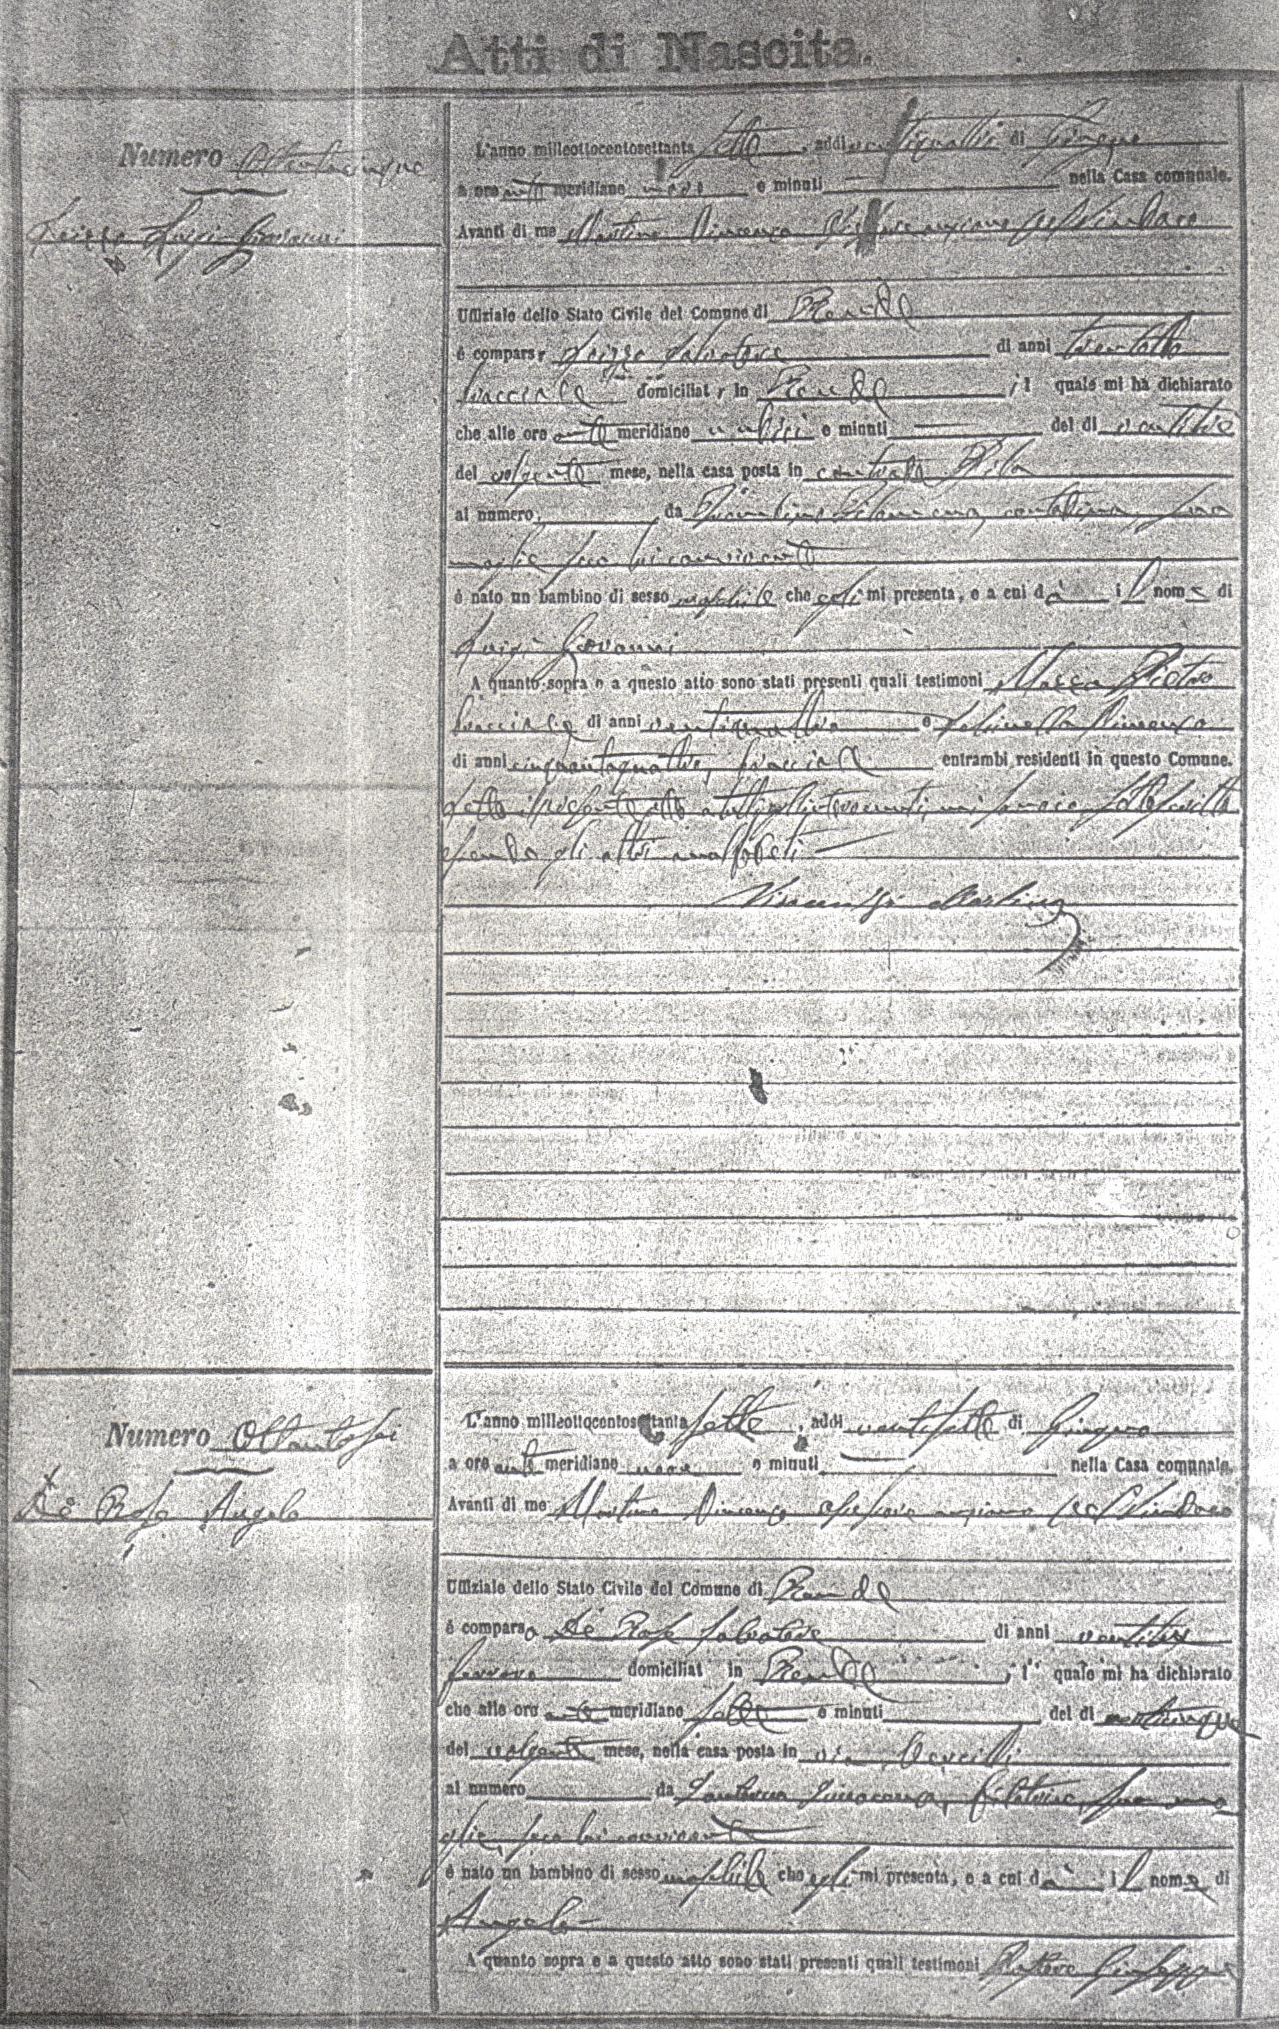 Atti di Nascita.
Numero Ottantacinque
Luigi Giovanni
L'anno milleottocentosettanta sette, addi ventiquattro di Giugno
a ore ante meridiane nove e minuti nella Casa comunale.
Avanti di me Martino Vincenzo anziano pel Sindaco
Uffiziale dello Stato Civile del Comune di Rende
è comparso Salvatore di anni trentotto
bracciale domiciliato in Rende ; il quale mi ha dichiarato
che alle ore ante meridiane undici e minuti del dì ventitre
del volgente mese, nella casa posta in contrada
al numero da Filomena, contadina, sua
moglie seco lui convivente
è nato un bambino di sesso maschile che egli mi presenta, e a cui dà il nome di
Luigi Giovanni
A quanto sopra e a questo atto sono stati presenti quali testimoni Pietro
bracciale di anni ventiquattro e Vincenzo
di anni cinquantaquattro, bracciale entrambi residenti in questo Comune.
Letto il presente atto a tutti gl'intervenuti, mi sono io sottoscritto
essendo gli altri analfabeti
Vincenzo Martino
Numero Ottantasei
De Rose Angelo
L'anno milleottocentosettanta sette, addi ventisette di Giugno
a ore ante meridiane nove e minuti nella Casa comunale.
Avanti di me Martino Vincenzo Assessore anziano pel Sindaco
Uffiziale dello Stato Civile del Comune di Rende
è comparso De Rose Salvatore di anni ventitre
ferraro domiciliat in Rende ; il quale mi ha dichiarato
che alle ore ante meridiane sette e minuti del dì venticinque
del volgente mese, nella casa posta in via
al numero da filatrice, sua mo
glie, seco lui convivente
è nato un bambino di sesso maschile che egli mi presenta, e a cui dà il nome di
Angelo
A quanto sopra e a questo atto sono stati presenti quali testimoni Giuseppe